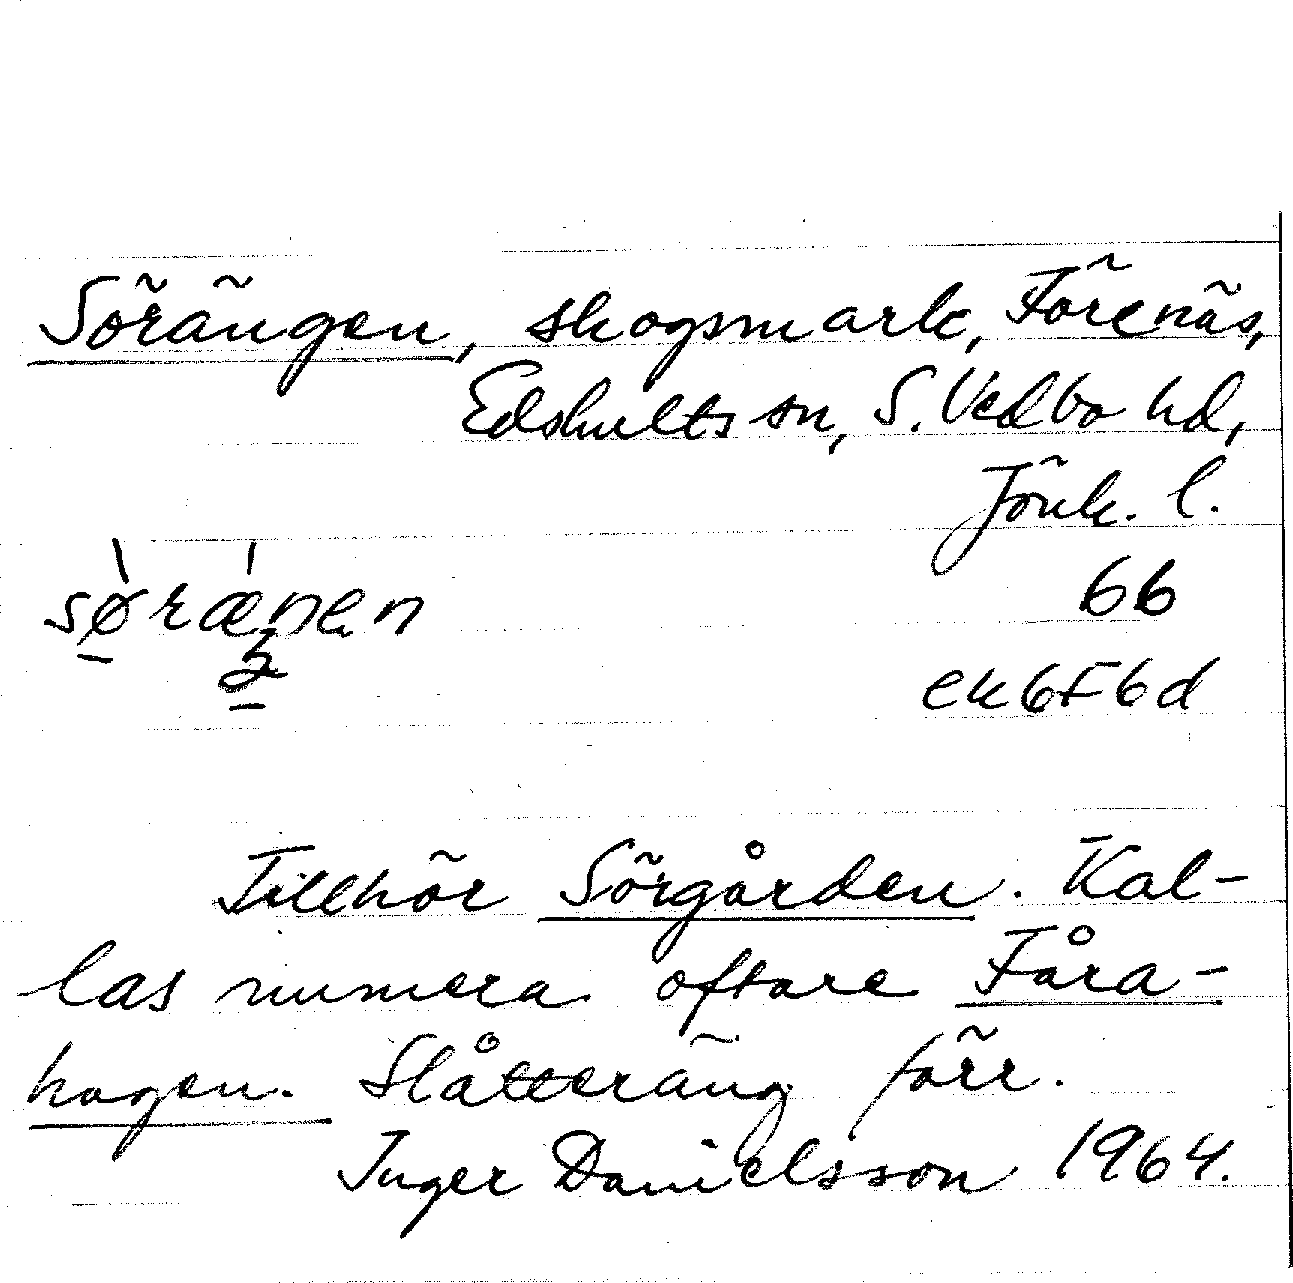 Sörängen, skogsmark, Förenäs,
Edshults sn, S. Vedbo hd,
Jönk. l.
66
ek6F6d
Tillhör Sörgården. Kal-
las numera oftare Fåra-
hagen. Slåtteräng förr.
Inger Danielsson 1964.